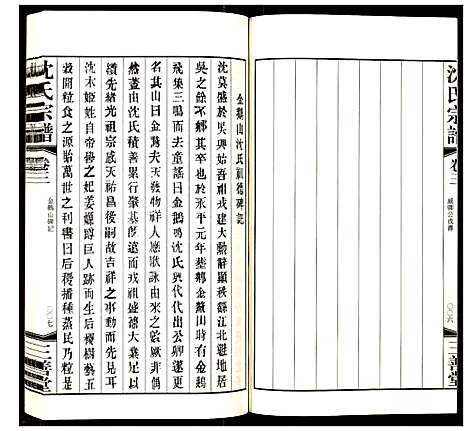 沈氏宗譜
卷三
威卿公戊傳
〇〇六
三善堂
金鵝山沈氏祖德碑記
沈莫盛於吳興始吾祖戎建大勲辭顯秩錫江北避地居
吳之餘不鄉其後十一世孫當宋元年塟鄉金鵝山時有金鵝
飛集三鳴而去童謡曰金鵝鳴沈氏興代代出公卿遂更
名其山曰金鵝後之人物祥應歌誠由來之兹厥兆非偶
然蓋由沈氏積善累行天將啟其肇基而綿遠大業足以
纘先緒光祖宗感天祐昌後嗣故吉祥之事動而先見乎
沈本姬姓自帝嚳之妃姜嫄蹲巨人跡而生后稷樹蓺五
穀開粒食之源貽萬世之利書曰后稷播種蒸民乃粒是
沈氏宗譜
卷三
金鵝山碑記
〇〇七
三善堂